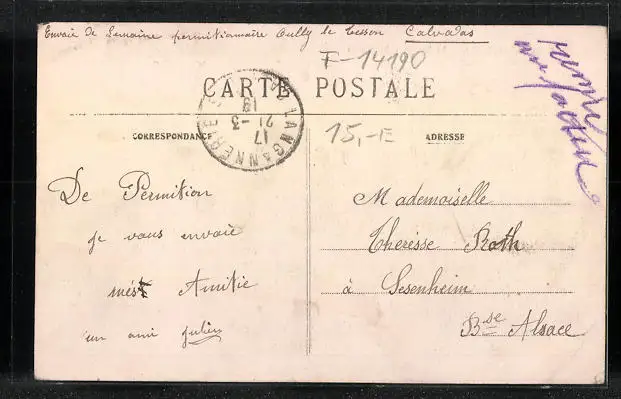 Envoie de Lemoine permitionnaire Oully le Tesson Calvados
F-14190
CARTE POSTALE
LANGANNERIE
19
21-3
17
15,-E
CORRESPONDANCE
ADRESSE
De Permition
je vous envoie
més Amitie
un ami Julien
Mademoiselle
Theresse Roth
à Sesenheim
Bse Alsace